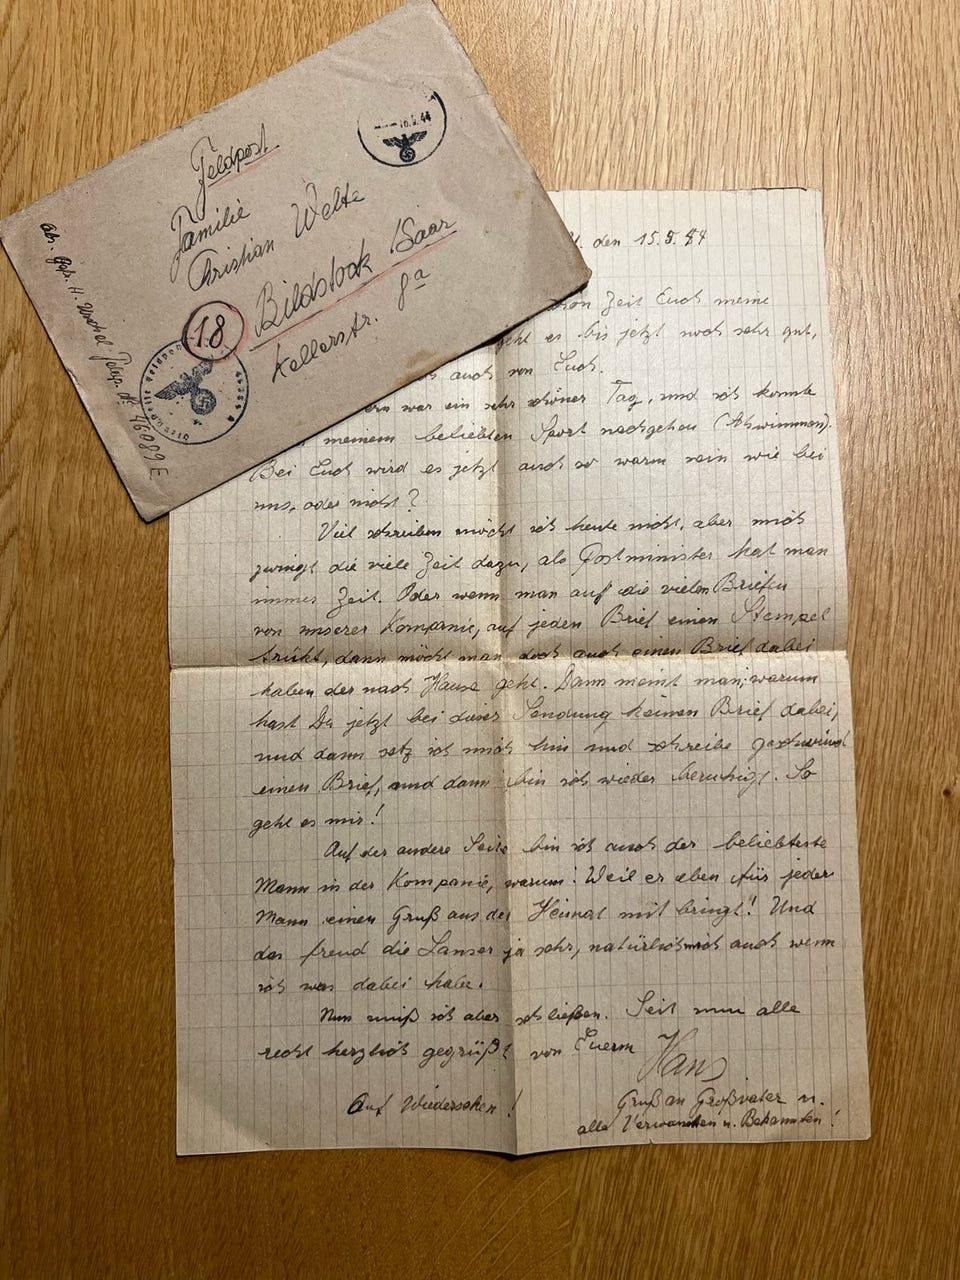 Feldpost
Familie
Christian Welte
Bildstock /Saar
Kellerstr. 8a
18
Abs. Gefr. H.
No 46089 E
16.5.44
den 15.5.44
schon Zeit Euch meine
geht es bis jetzt noch sehr gut,
auch von Euch.
war ein sehr schöner Tag, und ich konnte
meinem beliebten Sport nachgehen (Schwimmen).
Bei Euch wird es jetzt auch so warm sein wie bei
uns, oder nicht?
Viel schreiben möcht ich heute nicht, aber mich
zwingt die viele Zeit dazu, als Postminister hat man
immer Zeit. Oder wenn man auf die vielen Briefen
von unserer Kompanie, auf jeden Brief einen Stempel
trückt, dann möcht man doch auch einen Brief dabei
haben der nach Hause geht. Dann meint man; warum
hast Du jetzt bei dieser Sendung keinen Brief dabei,
und dann setz ich mich hin und schreibe geschwind
einen Brief, und dann bin ich wieder beruhigt. So
geht es mir!
Auf der andere Seite bin ich auch der beliebteste
Mann in der Kompanie, warum! Weil er eben für jeder
Mann einen Gruß aus der Heimat mit bringt! Und
das freud die Lanser ja sehr, natürlich mich auch wenn
ich was dabei habe.
Nun muß ich aber schließen. Seit nun alle
recht herzlich gegrüßt von Euerm Hans
Auf Wiedersehen!
Gruß an Großvater u.
alle Verwanten u. Bekannten!